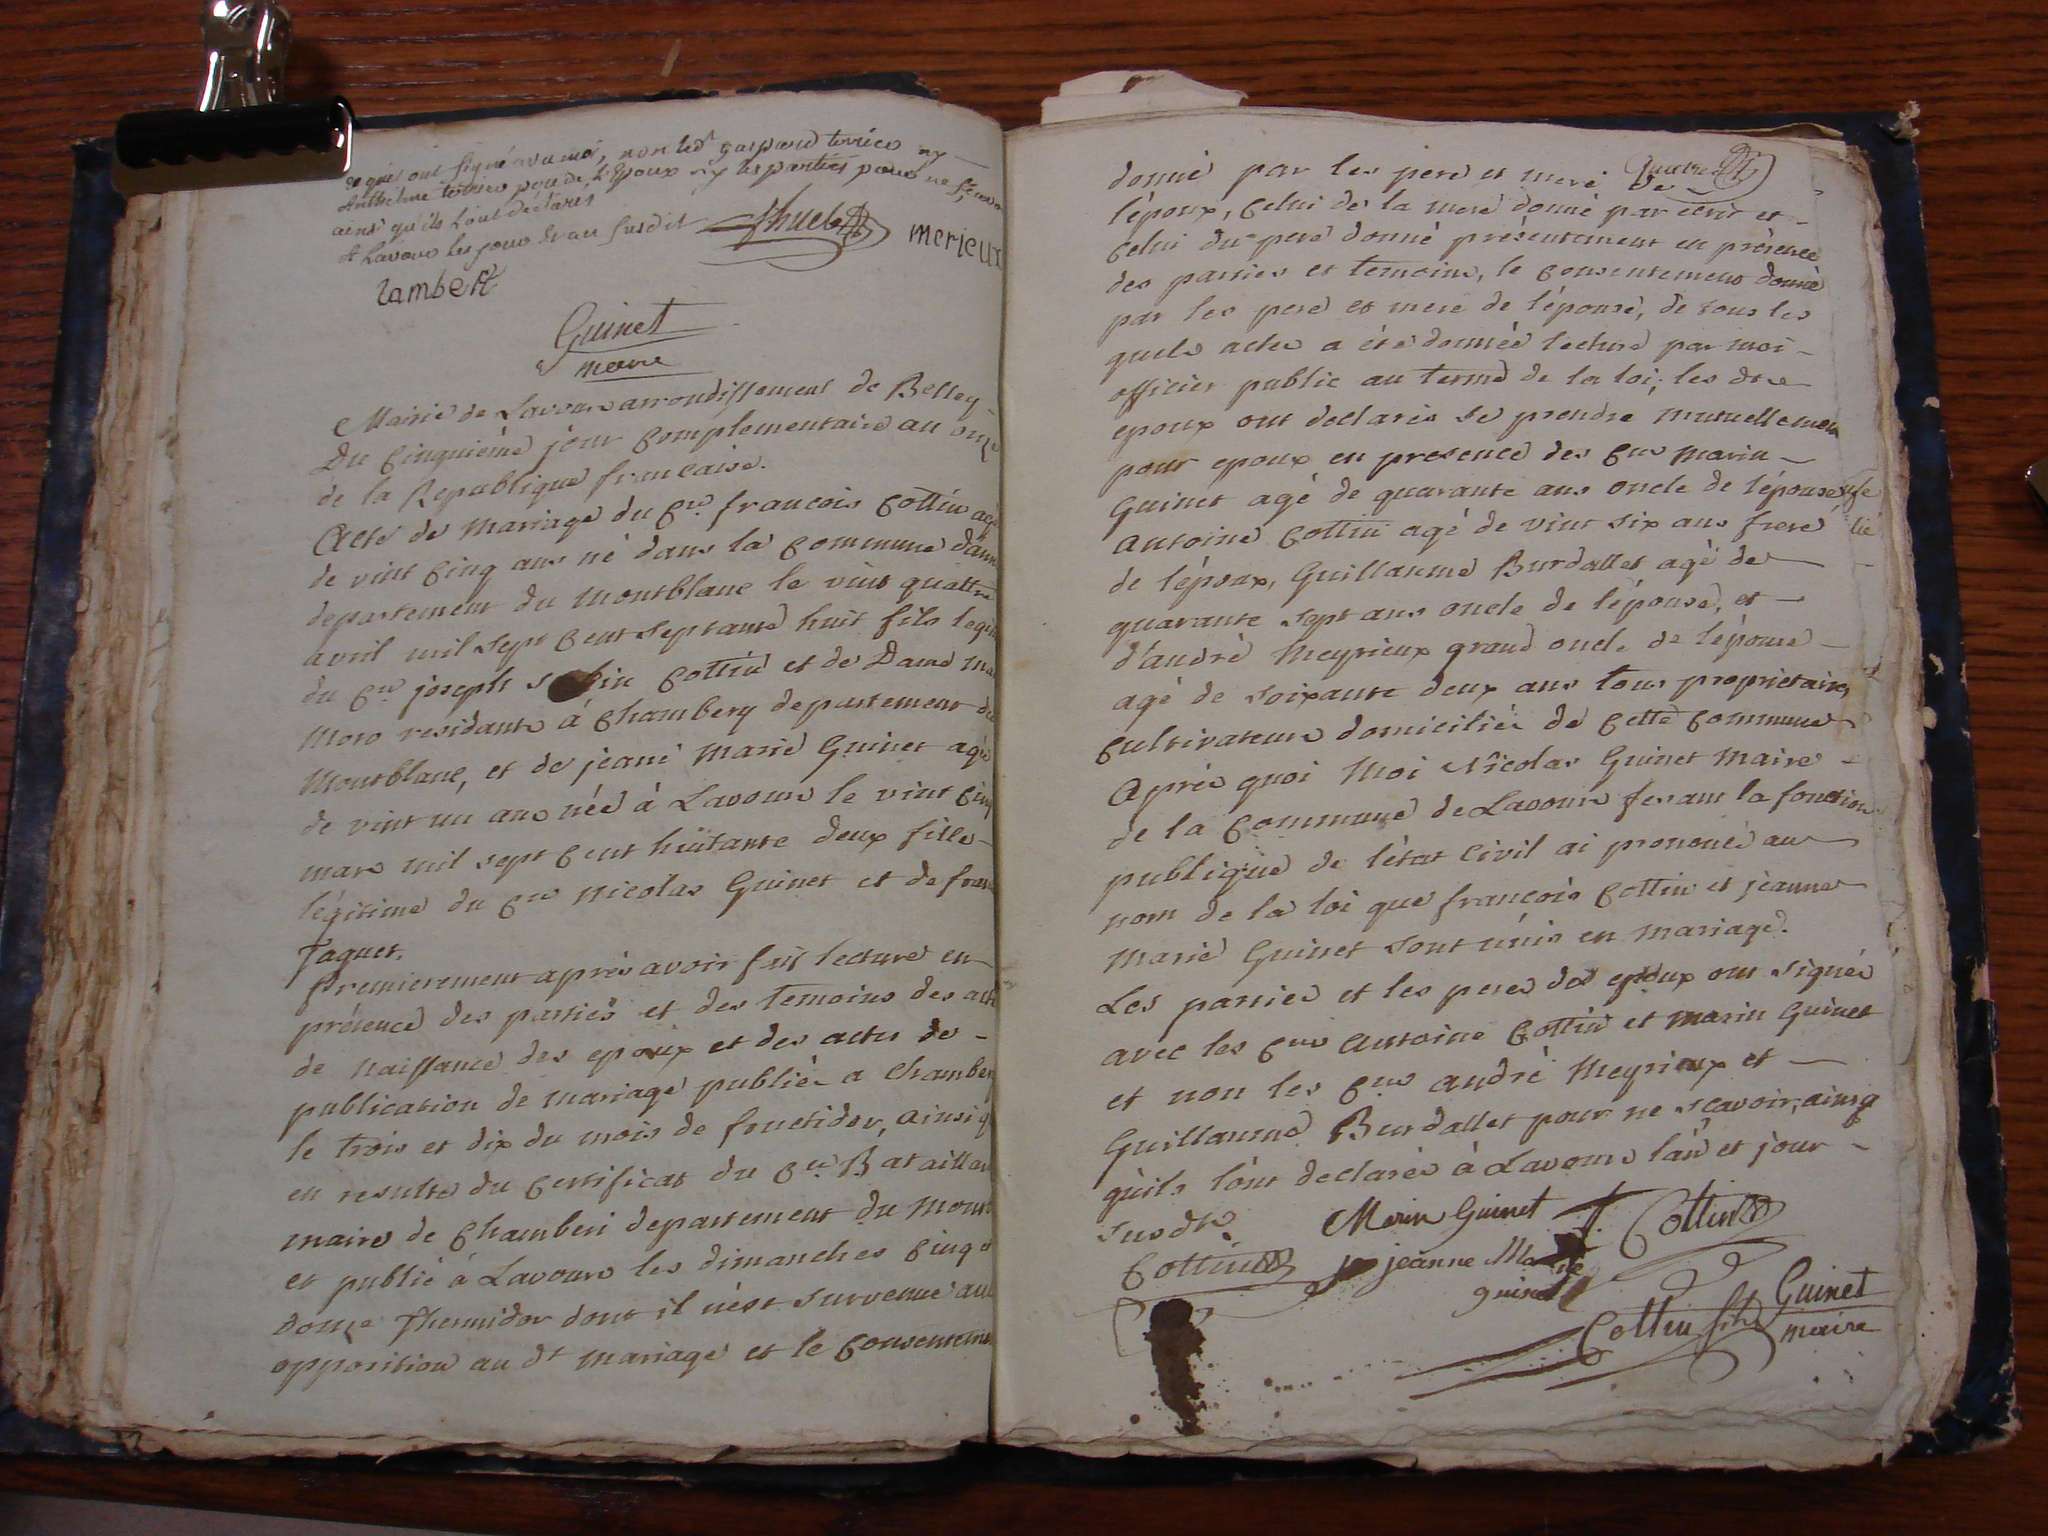 de qui ont signé avec moi, non led gaspard terrier ny
Anthelme terrier père de l'Epoux ny les parties pour ne sçavoir
ainsi qu'ils l'ont déclarés
A Lavour les jour et an susdit
merieux
Lambert
Guinet
maire
Mairie de Lavours arrondissement de Belley
Du cinquième jour complementaire an onze
de la Republique française.
Acte de Mariage du Cen. françois Cottin agé
de vint cinq ans né dans la Commune
departement du Montblanc le vint quattre
avril mil sept cent septante huit fils legi
du Cen joseph Cottin et de Dame Ma
Moro residants à Chambery departement du
Montblanc, et de jeane Marie Guinet agée
de vint un ans née à Lavours le vint cinq
mars mil sept cent huitante deux fille
légitime du Cen Nicolas Guinet et de fran
Taguet.
Premierement après avoir fait lecture en
présence des parties et des temoins des acte
de naissance des epoux et des actes de
publication de mariage publiés a Chamberi
le trois et dix du mois de fructidor, ainsi q
en resulte du Certificat du Cen. Bataillar
maire de Chamberi departement du Mont
et publié à Lavours les dimanches cinq e
douze Thermidor dont il n'est survenue au
opposition au dt mariage et le Consentem
donné par les pere et mere de
l'époux, celui de la mere donné par écrit et
celui du pere donné présentement en présence
des parties et temoins, le consentement donné
par les pere et mere de l'épouse, de tous les
quels actes a été donnée lecture par moi
officier public au terme de la loi, les dts
epoux ont declarés se prendre mutuellement
pour epoux en presence des Cens Marin
Guinet agé de quarante ans oncle de l'épouse
Antoine Cottin agé de vint six ans frere
de l'époux, Guillaume Burdallet agé de
quarante sept ans oncle de l'épouse, et
d'andré Meyrieux grand oncle de l'épouse
agé de soixante deux ans tous proprietaires
cultivateurs domiciliés de cette commune
Après quoi Moi Nicolas Guinet Maire
de la Commune de Lavours fesant la fonction
publique de l'état Civil ai prononcé au
nom de la loi que françois Cottin et jeanne
Marie Guinet sont unis en mariage.
Les parties et les peres des epoux ont signés
avec les Cens Antoine Cottin et Marin Guinet
et non les Cens andré Meyrieux et
Guillaume Burdallet pour ne scavoir, ainsy
qu'ils l'ont declarés à Lavours l'an et jour
susdts.
Marin Guinet
Cottin
Cottin
jeanne Marie
guinet
Guinet
Cottin fils
maire